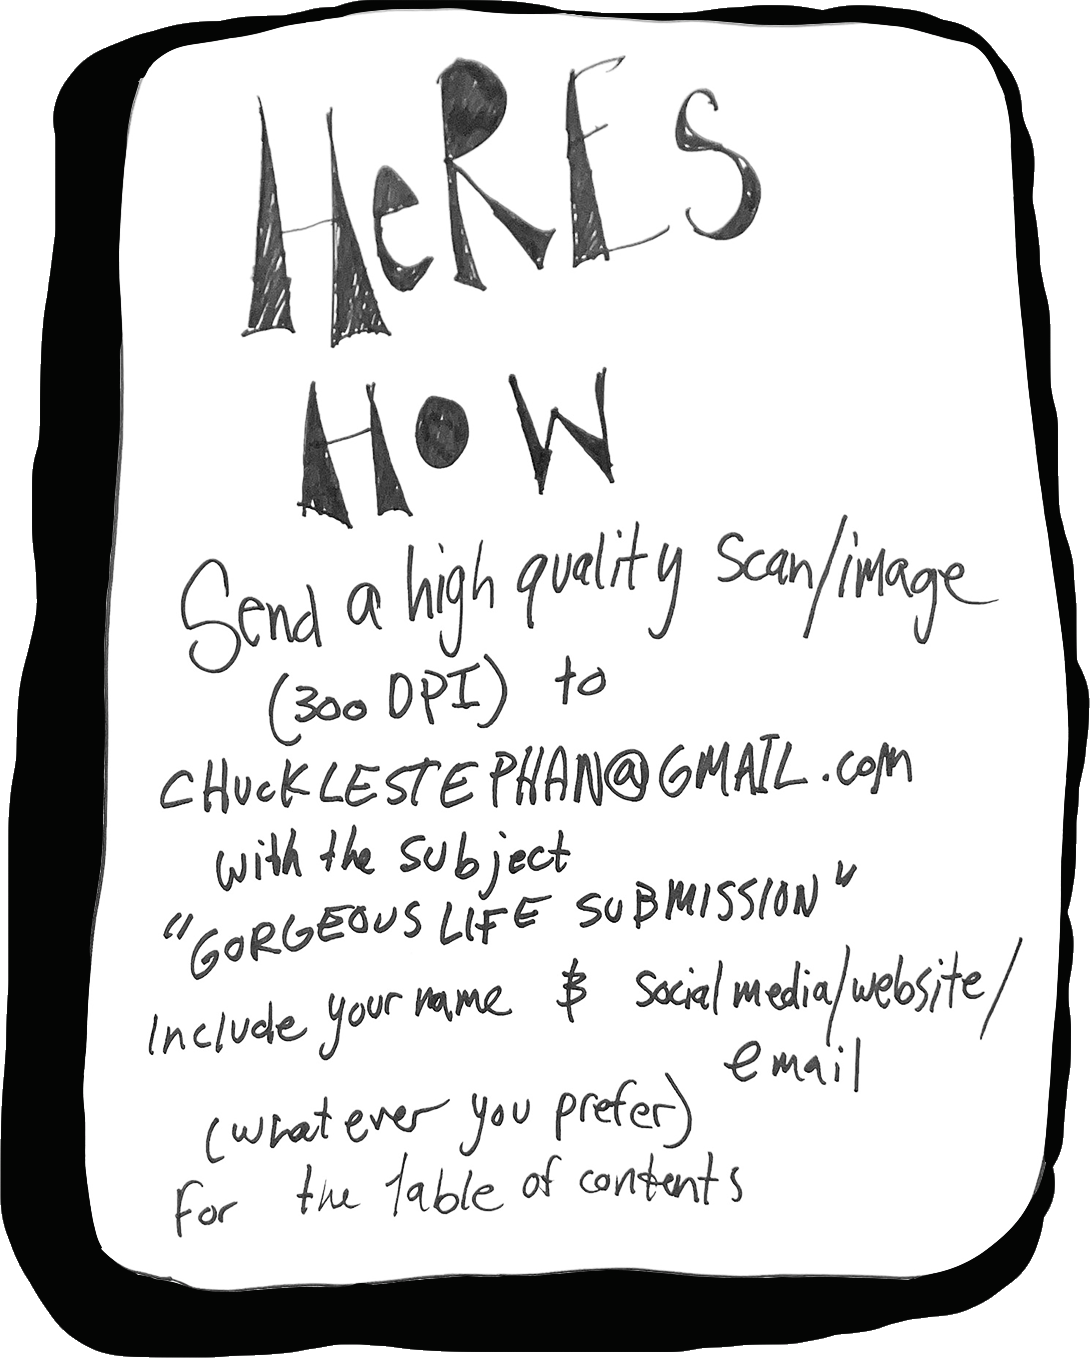 HeRES
HOW
Send a high quality scan/image
(300 DPI) to
CHUCKLESTEPHAN@GMAIL.com
with the subject
"GORGEOUS LIFE SUBMISSION"
Include your name & social media/website/
email
(whatever you prefer)
For the table of contents